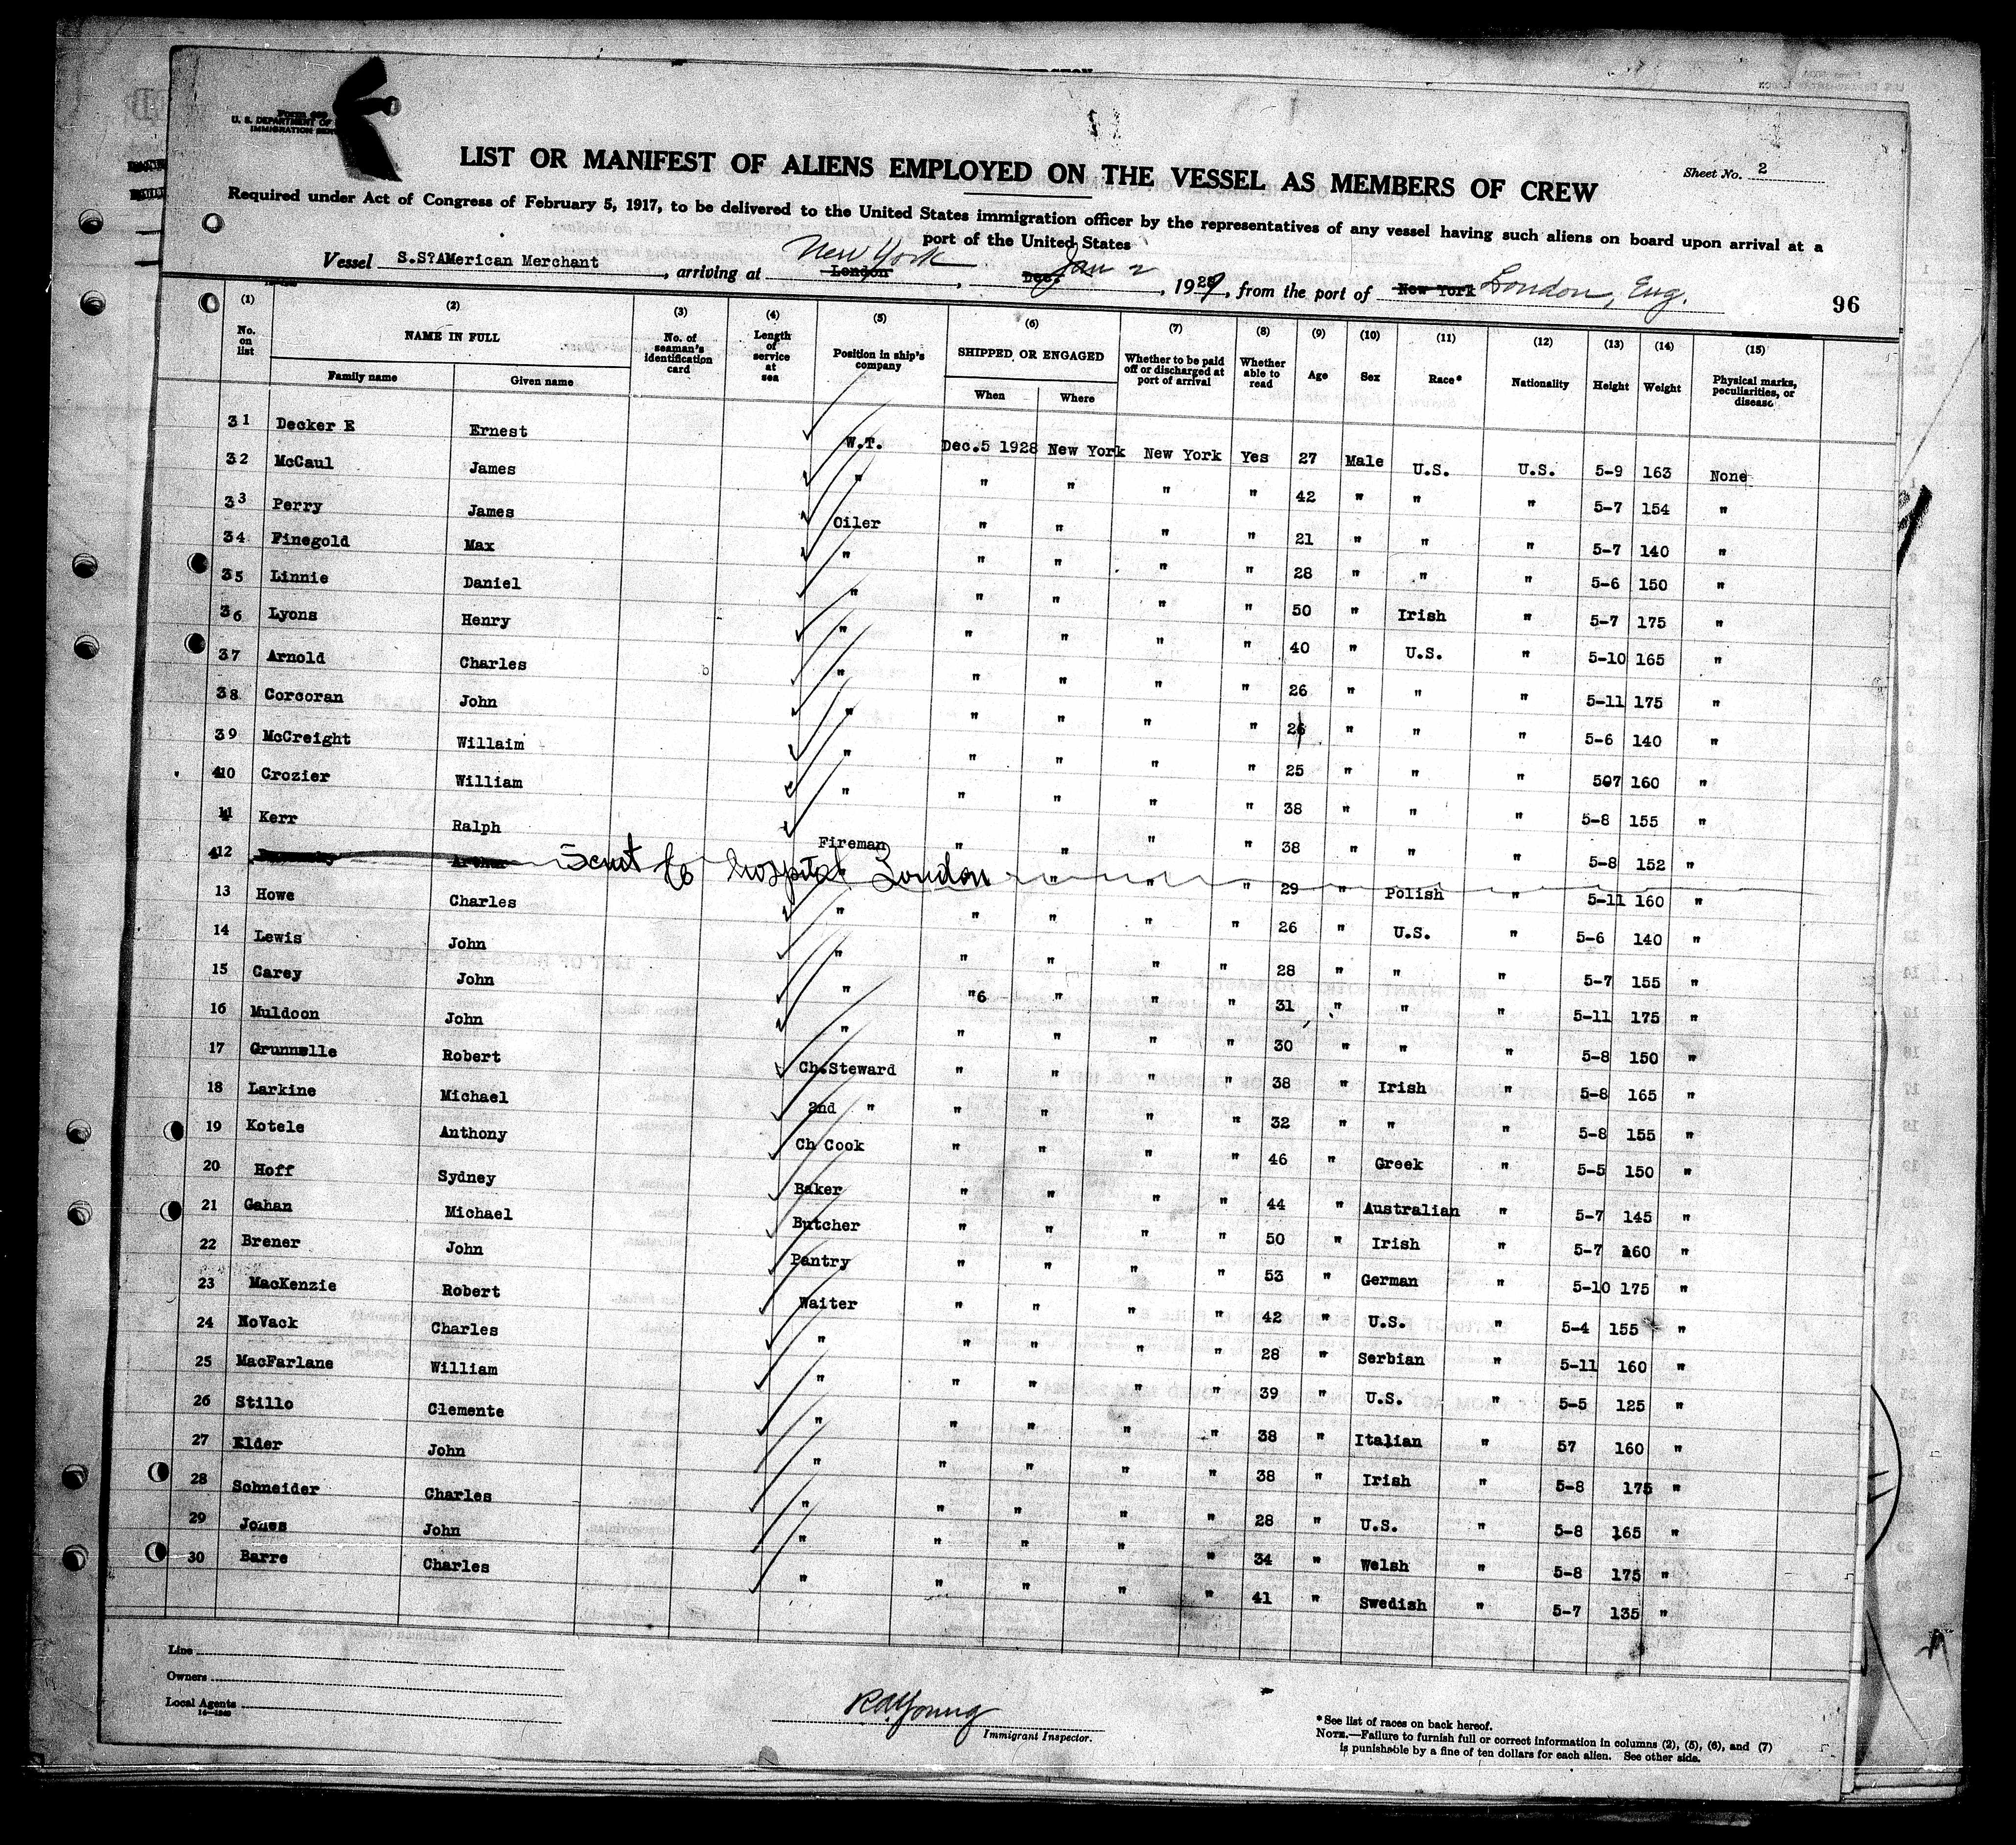 Form 689
U. S. DEPARTMENT OF
IMMIGRATION
LIST OR MANIFEST OF ALIENS EMPLOYED ON THE VESSEL AS MEMBERS OF CREW
Sheet No. 2
Required under Act of Congress of February 5, 1917, to be delivered to the United States immigration officer by the representatives of any vessel having such aliens on board upon arrival at a
port of the United States
Vessel S.S?AMerican Merchant, arriving at London New York, Dec. Jan 2, 1929, from the port of New York London, Eng.
96
(1) (2) (3) (4) (5) (6) (7) (8) (9) (10) (11) (12) (13) (14) (15)
No. on list NAME IN FULL No. of seaman's identification card Length of service at sea Position in ship's company SHIPPED OR ENGAGED Whether to be paid off or discharged at port of arrival Whether able to read Age Sex Race* Nationality Height Weight Physical marks, peculiarities, or disease
Family name Given name When Where
31 Decker E Ernest W.T. Dec.5 1928 New York New York Yes 27 Male U.S. U.S. 5-9 163 None
32 McCaul James " " " " " 42 " " " 5-7 154 "
33 Perry James Oiler " " " " 21 " " " 5-7 140 "
34 Finegold Max " " " " " 28 " " " 5-6 150 "
35 Linnie Daniel " " " " " 50 " Irish " 5-7 175 "
36 Lyons Henry " " " " " 40 " U.S. " 5-10 165 "
37 Arnold Charles " " " " " 26 " " " 5-11 175 "
38 Corcoran John " " " " " 26 " " " 5-6 140 "
39 McCreight Willaim " " " " " 25 " " " 507 160 "
410 Crozier William " " " " " 38 " " " 5-8 155 "
11 Kerr Ralph Fireman " " " " 38 " " " 5-8 152 "
412 Arthur Sent to hospital London " " " 29 Polish " 5-11 160 "
13 Howe Charles " " " " " 26 " U.S. " 5-6 140 "
14 Lewis John " " " " " 28 " " " 5-7 155 "
15 Carey John " "6 " " " 31 " " " 5-11 175 "
16 Muldoon John " " " " " 30 " " " 5-8 150 "
17 Grunnelle Robert Ch.Steward " " " " 38 " Irish " 5-8 165 "
18 Larkine Michael 2nd " " " " " 32 " " " 5-8 155 "
19 Kotele Anthony Ch Cook " " " " 46 " Greek " 5-5 150 "
20 Hoff Sydney Baker " " " " 44 " Australian " 5-7 145 "
21 Gahan Michael Butcher " " " " 50 " Irish " 5-7 160 "
22 Brener John Pantry " " " " 53 " German " 5-10 175 "
23 MacKenzie Robert Waiter " " " " 42 " U.S. " 5-4 155 "
24 NoVack Charles " " " " " 28 " Serbian " 5-11 160 "
25 MacFarlane William " " " " " 39 " U.S. " 5-5 125 "
26 Stillo Clemente " " " " " 38 " Italian " 57 160 "
27 Elder John " " " " " 38 " Irish " 5-8 175 "
28 Schneider Charles " " " " " 28 " U.S. " 5-8 165 "
29 Jones John " " " " " 34 " Welsh " 5-8 175 "
30 Barre Charles " " " " " 41 " Swedish " 5-7 135 "
Line
Owners
Local Agents
14—1240
R A Young
Immigrant Inspector.
*See list of races on back hereof.
NOTE.—Failure to furnish full or correct information in columns (2), (5), (6), and (7)
is punishable by a fine of ten dollars for each alien. See other side.